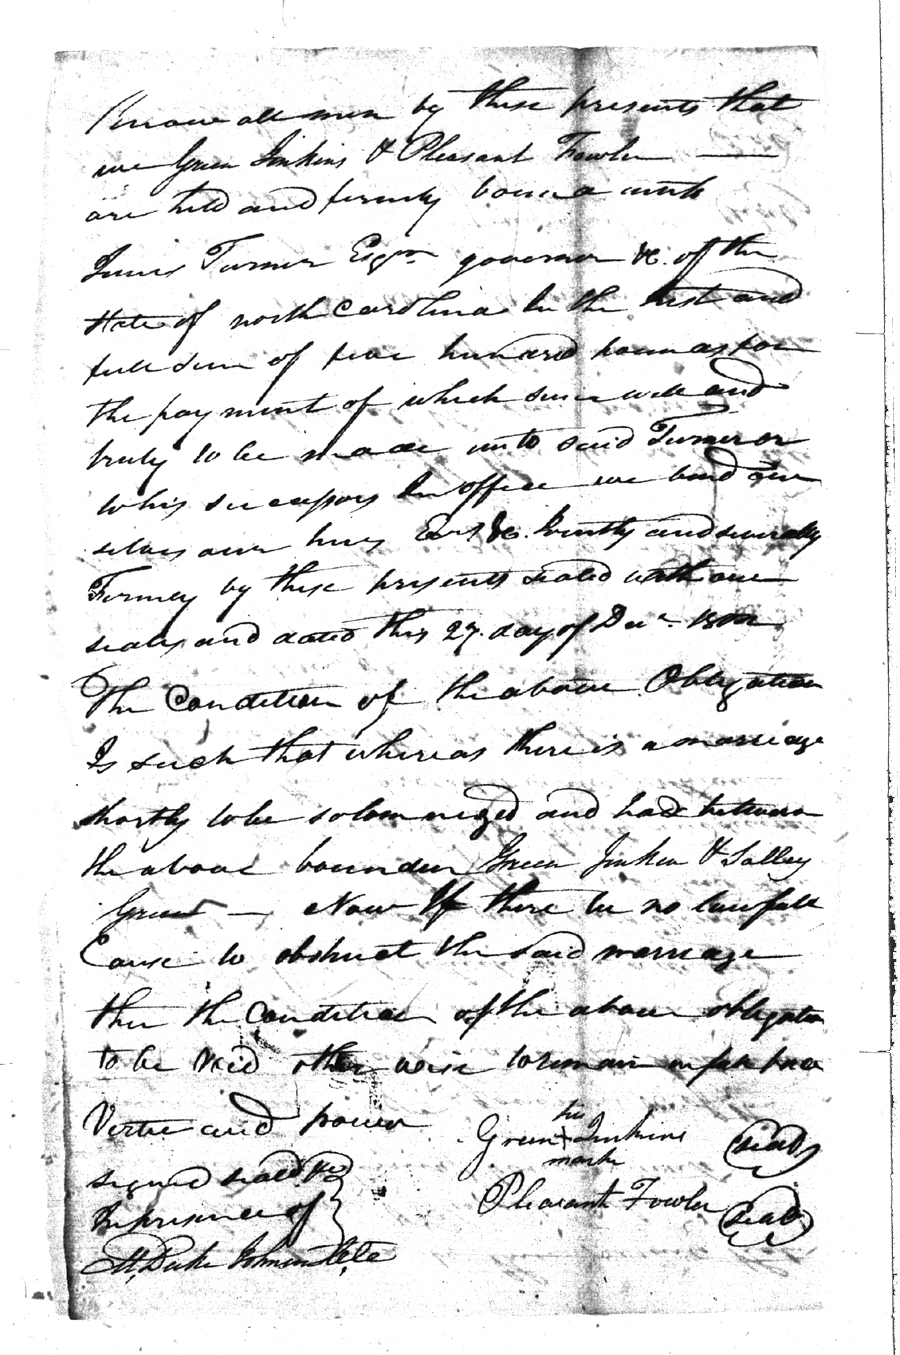 Know all men by these presents that
we Green Jinkins & Pleasant Fowler
are held and firmly bound unto
James Turner Esqr. governor &c. of the
State of north Carolina In the Just and
full Sum of five hundred pounds for
the payment of which sum well and
truly to be made unto said Turner or
to his successors In office we bind our
selves our heirs Exrs &c. Jointly and severally
Firmly by these presents sealed with our
seals and dated this 27. day of Decr. 1802
The Condition of the above Obligation
Is such that whereas there is a marriage
shortly to be solemnized and had between
the above bounden Green Jinkin & Salley
Now If there be no lawfull
Cause to obstruct the said marriage
then the Condition of the above obligation
to be Void other wise to remain in full force
Virtue and power
his
Green + Jinkins seal
mark
Signed seald &c
In presence of
Pleasant Fowler seal
M. Duke Johnson